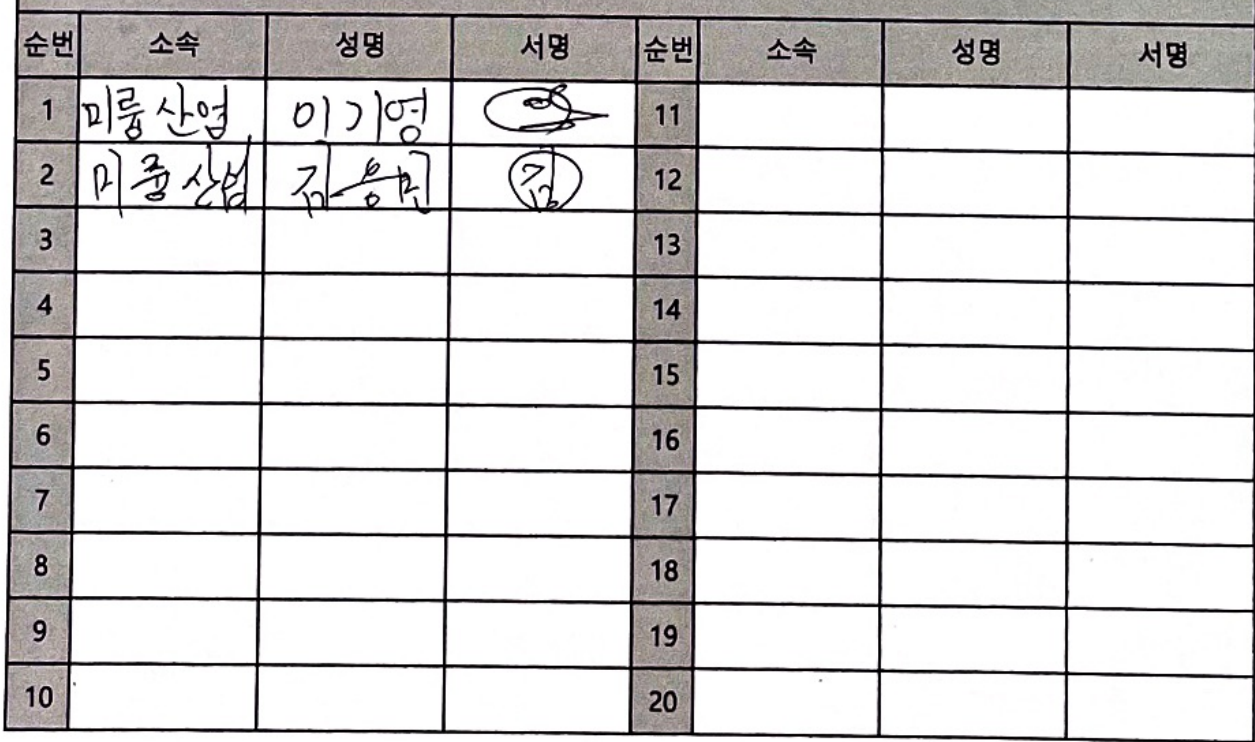 순번 소속 성명 서명 순번 소속 성명 서명
1 미룡산업 이기영 11
2 미룡산업 김용민 김 12
3 13
4 14
5 15
6 16
7 17
8 18
9 19
10 20